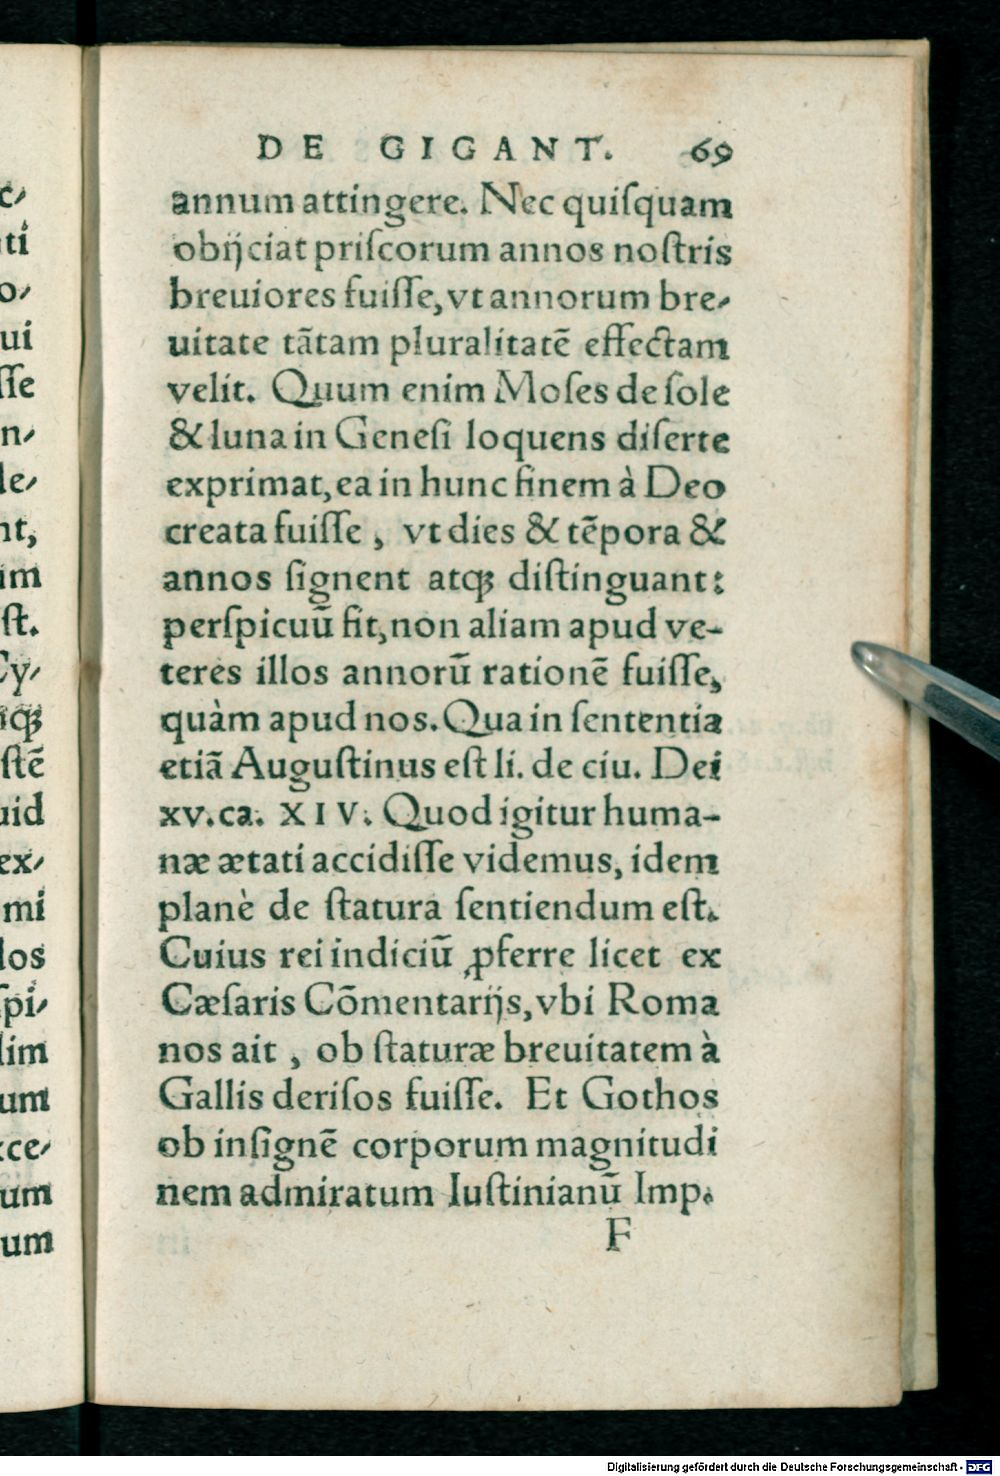 DE GIGANT. 69
annum attingere. Nec quiſquam
obijciat priſcorum annos noſtris
breuiores fuiſſe, vt annorum bre-
uitate tãtam pluralitatẽ effectam
velit. Quum enim Moſes de ſole
& luna in Geneſi loquens diſerte
exprimat, ea in hunc finem à Deo
creata fuiſſe, vt dies & tẽpora &
annos ſignent atqꝫ diſtinguant:
perſpicuũ fit, non aliam apud ve-
teres illos annorũ rationẽ fuiſſe,
quàm apud nos. Qua in ſententia
etiã Auguſtinus eſt li. de ciu. Dei
xv. ca. XIV. Quod igitur huma-
næ ætati accidiſſe videmus, idem
planè de ſtatura ſentiendum eſt.
Cuius rei indiciũ ꝓferre licet ex
Cæſaris Cõmentarijs, vbi Roma
nos ait, ob ſtaturæ breuitatem à
Gallis deriſos fuiſſe. Et Gothos
ob inſignẽ corporum magnitudi
nem admiratum Iuſtinianũ Imp.
F
c-
ti
o-
ui
ſſe
n-
le-
nt,
um
ſt.
Cy-
ſtẽ
uid
ex-
mi
los
ſpi-
lim
um
ce-
um
um
Digitalisierung gefördert durch die Deutsche Forschungsgemeinschaft - DFG